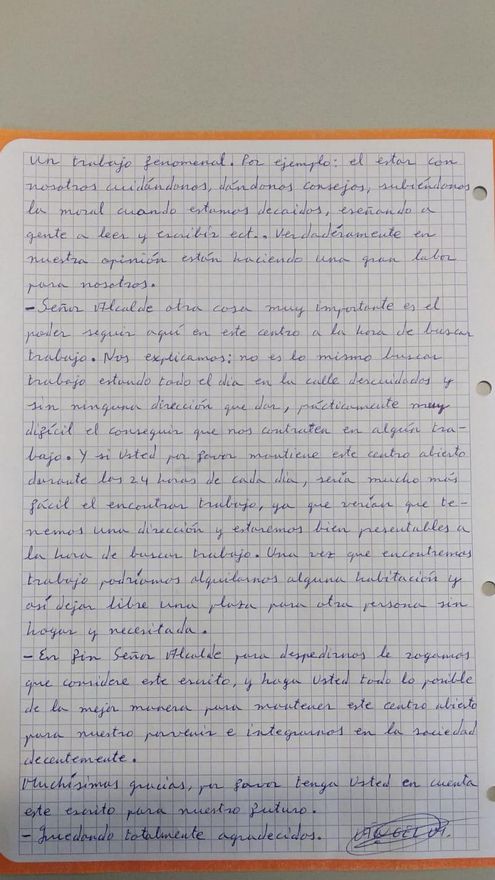 un trabajo fenomenal. Por ejemplo: el estar con
nosotros cuidándonos, dándonos consejos, subiéndonos
la moral cuando estamos decaidos, eseñando a
gente a leer y escribir ect.. Verdadéramente en
nuestra opinión están haciendo una gran labor
para nosotros.
- Señor Alcalde otra cosa muy importante es el
poder seguir aquí en este centro a la hora de buscar
trabajo. Nos explicamos; no es lo mismo buscar
trabajo estando todo el día en la calle descuidados y
sin ninguna dirección que dar, prácticamente muy
difícil el conseguir que nos contraten en algún tra-
bajo. Y si Usted por favor mantiene este centro abierto
durante las 24 horas de cada día, sería mucho más
fácil el encontrar trabajo, ya que verían que te-
nemos una dirección y estaremos bien presentables a
la hora de buscar trabajo. Una vez que encontremos
trabajo podríamos alquilarnos alguna habitación y
así dejar libre una plaza para otra persona sin
hogar y necesitada.
- En fin Señor Alcalde para despedirnos le rogamos
que considere este escrito, y haga Usted todo lo posible
de la mejor manera para mantener este centro abierto
para nuestro porvenir e integrarnos en la sociedad
decentemente.
Muchísimas gracias, por favor tenga Usted en cuenta
este escrito para nuestro futuro.
- Quedando totalmente agradecidos. ANGEL M.